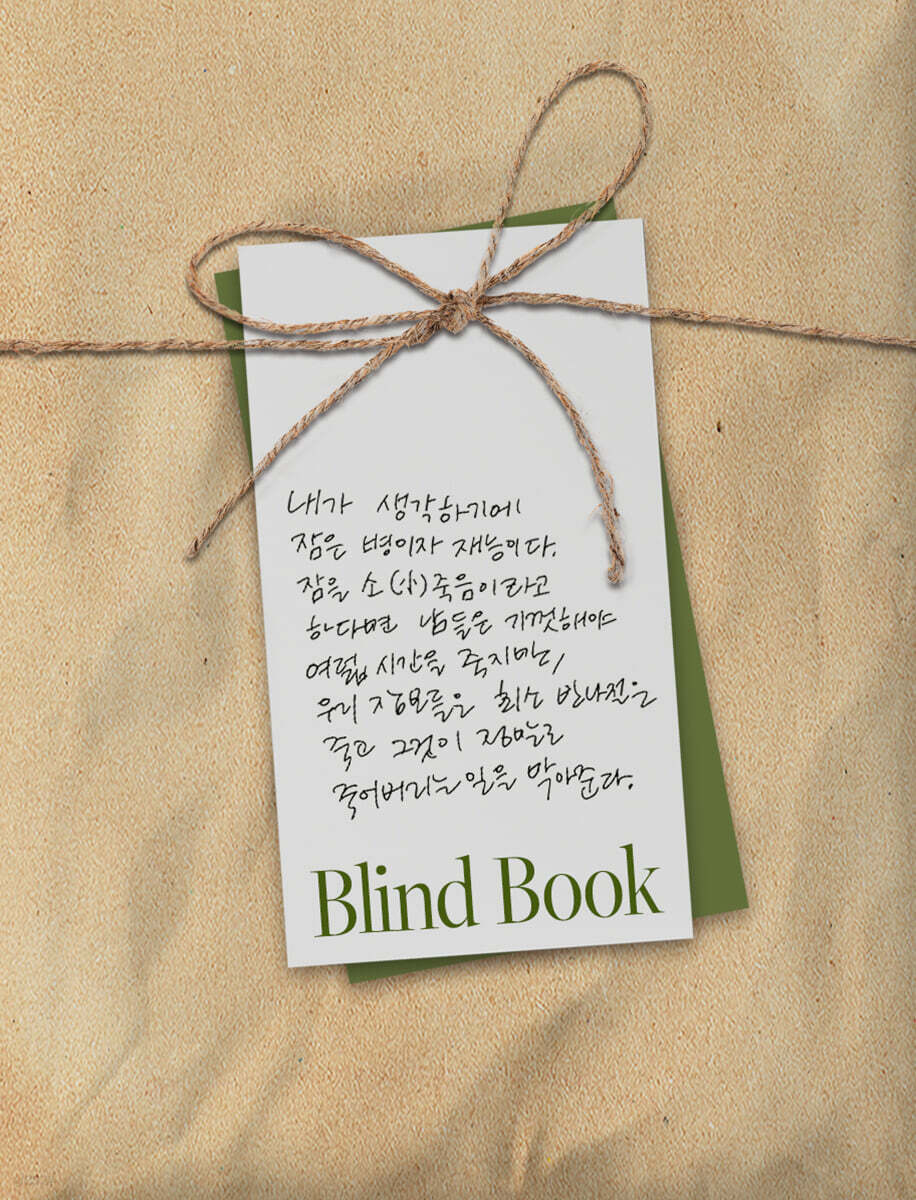 내가 생각하기에
잠은 병이자 재능이다.
잠을 소(小)죽음이라고
하다면 남들은 기껏해야
여덟 시간을 죽지만,
우리 잠보들은 최소 반나절은
죽고 그것이 정말로
죽어버리는 일을 막아준다.
Blind Book